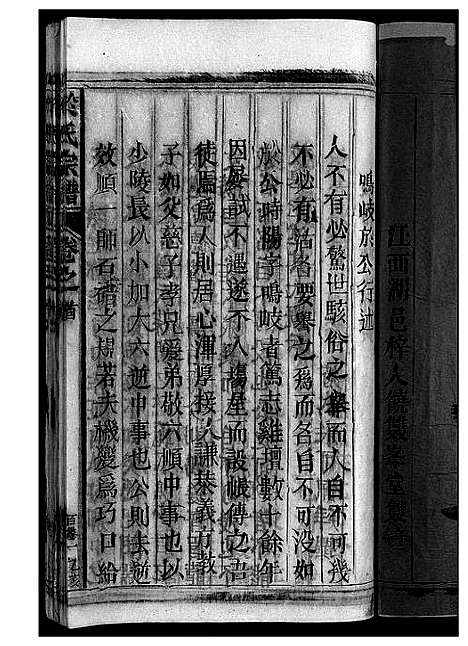 江西湖邑梓人饒
鳴岐於公行述
人不有必驚世駭俗之舉而人自不可幾
不必有沽名要譽之爲而名自不可没如
於公時陽字鳴岐者篤志雞壇數十餘年
因屢試不遇遂不入場屋而設帳傳之吾
徒焉爲人則居心渾厚接人謙恭義方教
子如父慈子孝兄愛弟敬六順中事也以
少陵長以小加大六逆中事也公則去逆
效順一師石碏之規若夫機變爲巧口給
於氏宗譜
卷之首